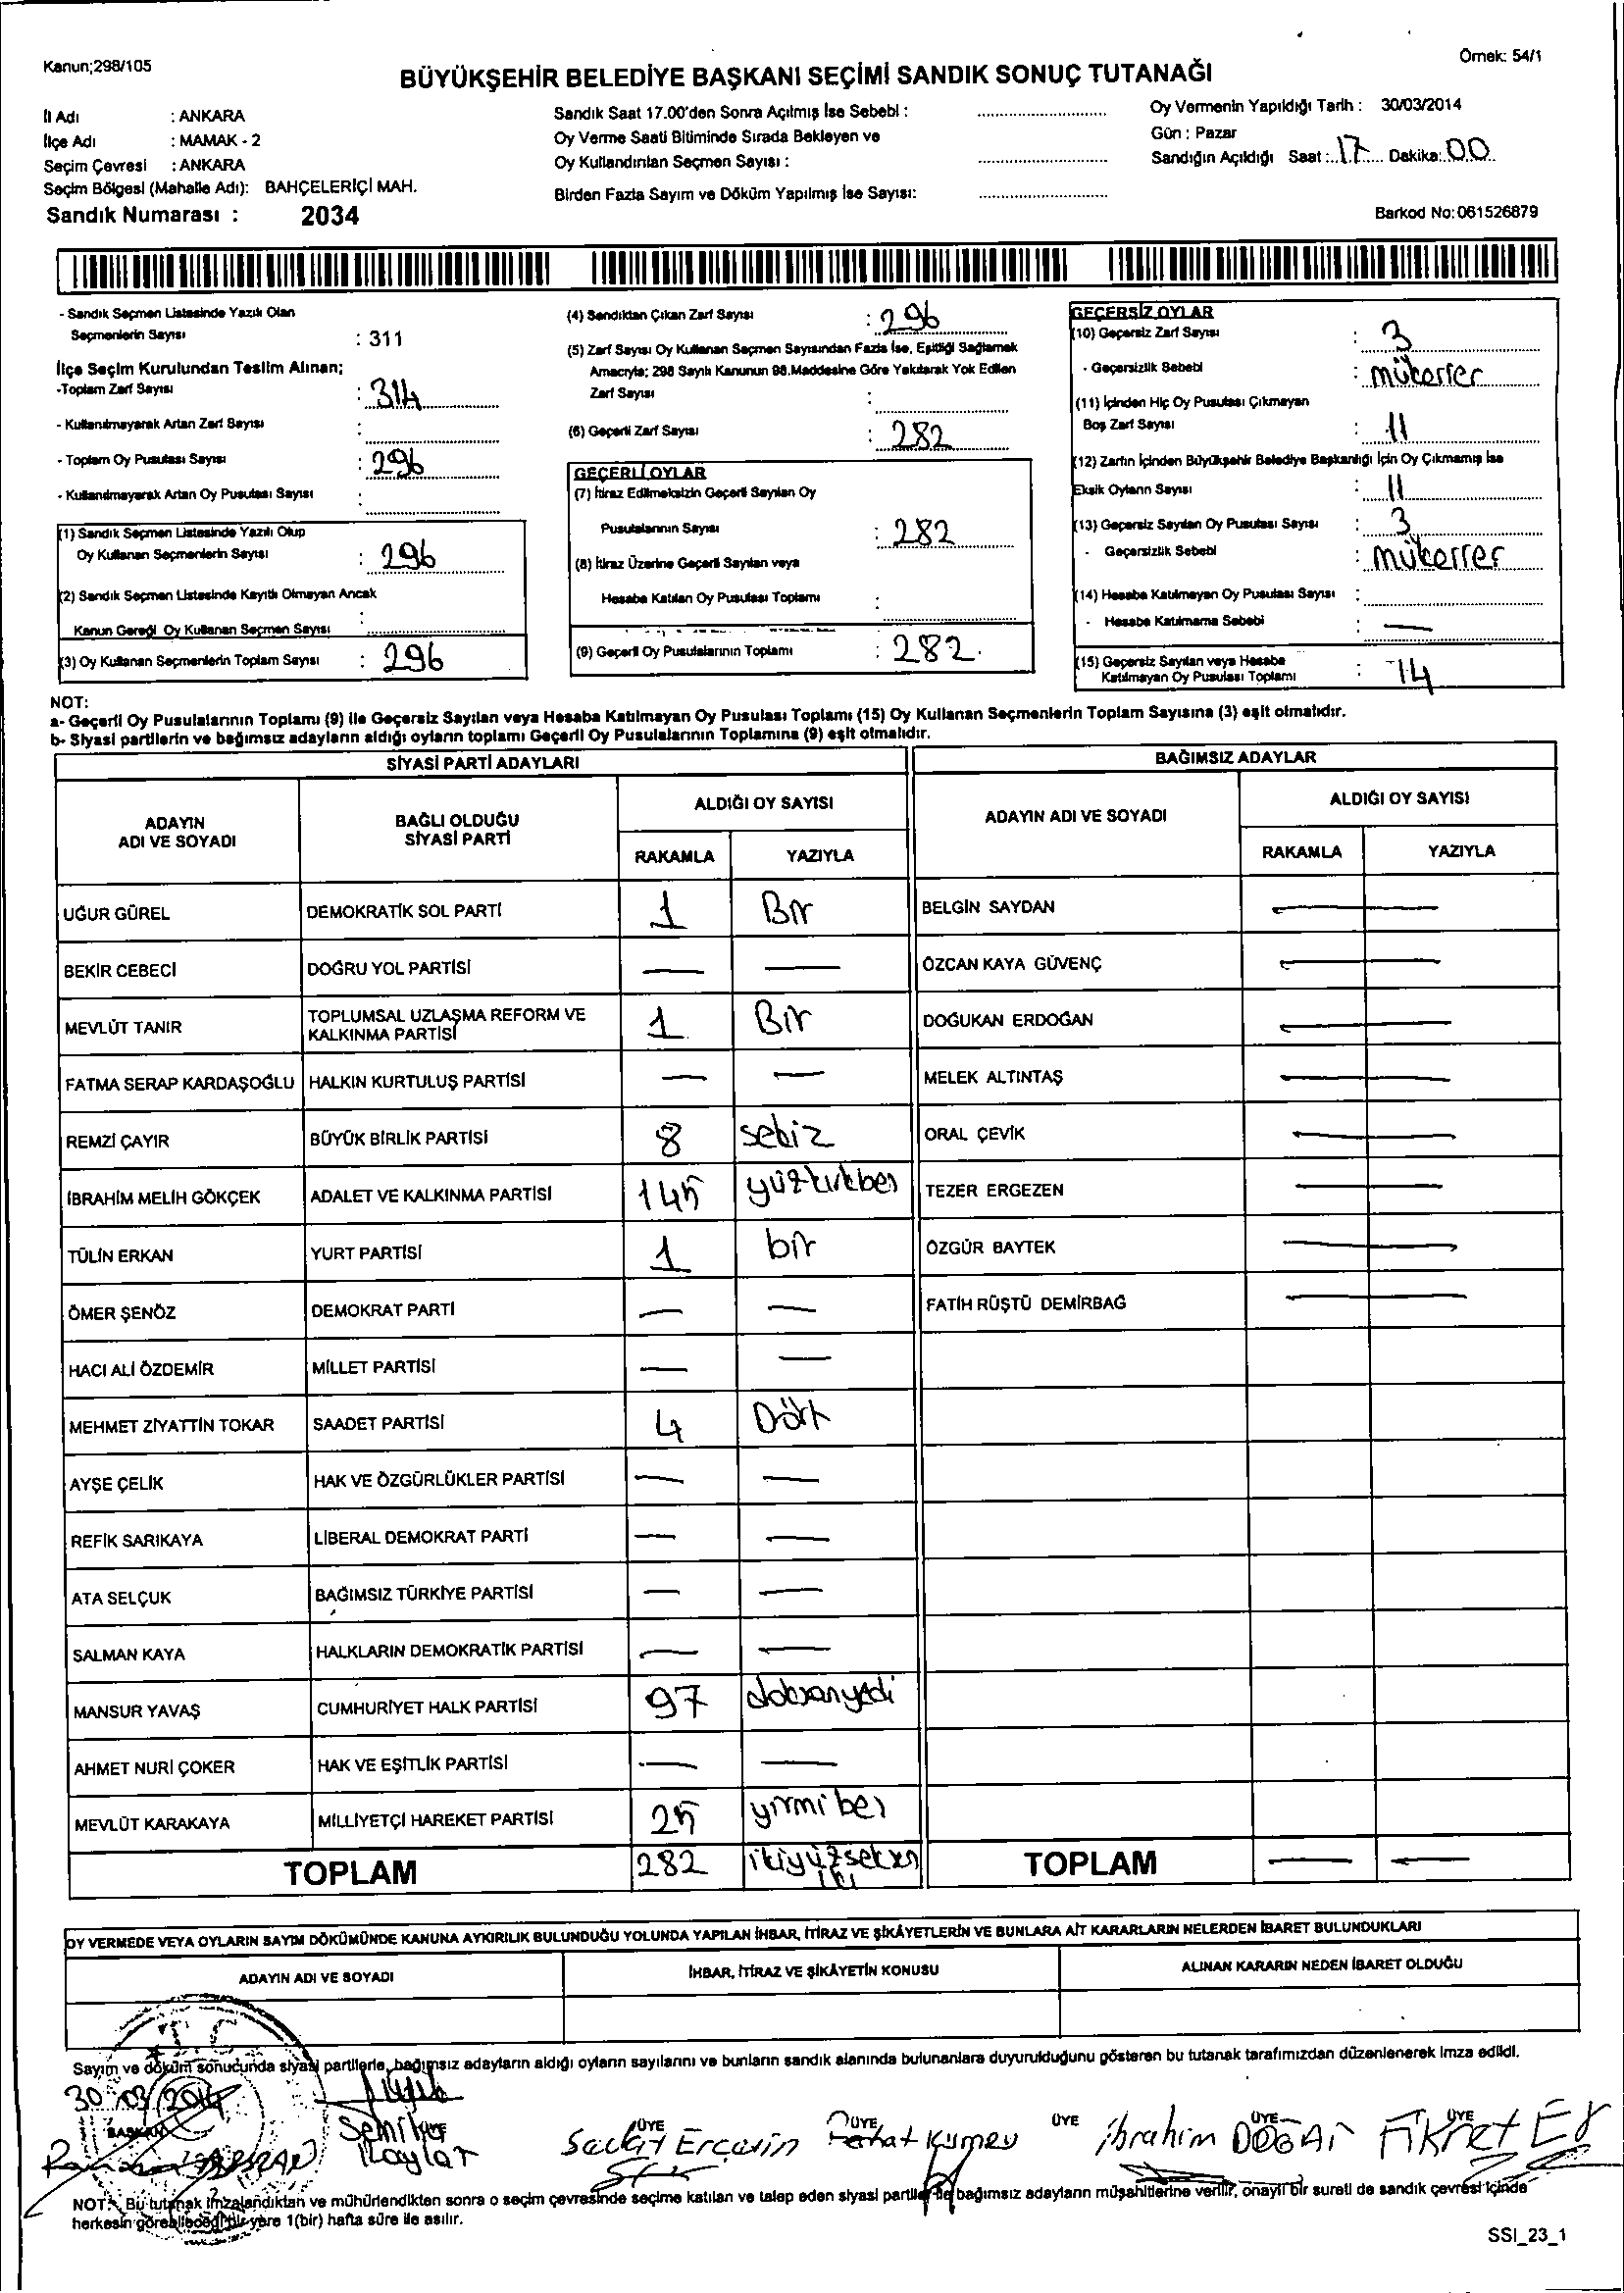 Kanun;298/105
Örnek: 54/1
BÜYÜKŞEHİR BELEDİYE BAŞKANI SEÇİMİ SANDIK SONUÇ TUTANAĞI
İl Adı : ANKARA
İlçe Adı : MAMAK - 2
Seçim Çevresi : ANKARA
Seçim Bölgesi (Mahalle Adı): BAHÇELERİÇİ MAH.
Sandık Numarası : 2034
Sandık Saat 17.00'den Sonra Açılmış İse Sebebi :
Oy Verme Saati Bitiminde Sırada Bekleyen ve
Oy Kullandırılan Seçmen Sayısı :
Birden Fazla Sayım ve Döküm Yapılmış İse Sayısı:
Oy Vermenin Yapıldığı Tarih : 30/03/2014
Gün : Pazar
Sandığın Açıldığı Saat: 17 Dakika: 00
Barkod No:061526879
- Sandık Seçmen Listesinde Yazılı Olan
Seçmenlerin Sayısı : 311
İlçe Seçim Kurulundan Teslim Alınan;
-Toplam Zarf Sayısı : 314
- Kullanılmayarak Artan Zarf Sayısı :
- Toplam Oy Pusulası Sayısı : 296
- Kullanılmayarak Artan Oy Pusulası Sayısı :
(1) Sandık Seçmen Listesinde Yazılı Olup
Oy Kullanan Seçmenlerin Sayısı : 296
(2) Sandık Seçmen Listesinde Kayıtlı Olmayan Ancak
Kanun Gereği Oy Kullanan Seçmen Sayısı :
(3) Oy Kullanan Seçmenlerin Toplam Sayısı : 296
(4) Sandıktan Çıkan Zarf Sayısı : 296
(5) Zarf Sayısı Oy Kullanan Seçmen Sayısından Fazla İse, Eşitliği Sağlamak
Amacıyla; 298 Sayılı Kanunun 98.Maddesine Göre Yakılarak Yok Edilen
Zarf Sayısı :
(6) Geçerli Zarf Sayısı : 282
GEÇERLİ OYLAR
(7) İtiraz Edilmeksizin Geçerli Sayılan Oy
Pusulalarının Sayısı : 282
(8) İtiraz Üzerine Geçerli Sayılan veya
Hesaba Katılan Oy Pusulası Toplamı :
(9) Geçerli Oy Pusulalarının Toplamı : 282
GEÇERSİZ OYLAR
(10) Geçersiz Zarf Sayısı : 3
- Geçersizlik Sebebi : mükerrer
(11) İçinden Hiç Oy Pusulası Çıkmayan
Boş Zarf Sayısı : 11
(12) Zarfın İçinden Büyükşehir Belediye Başkanlığı İçin Oy Çıkmamış İse
Eksik Oyların Sayısı : 11
(13) Geçersiz Sayılan Oy Pusulası Sayısı : 3
- Geçersizlik Sebebi : mükerrer
(14) Hesaba Katılmayan Oy Pusulası Sayısı :
- Hesaba Katılmama Sebebi : —
(15) Geçersiz Sayılan veya Hesaba
Katılmayan Oy Pusulası Toplamı : 14
NOT:
a- Geçerli Oy Pusulalarının Toplamı (9) ile Geçersiz Sayılan veya Hesaba Katılmayan Oy Pusulası Toplamı (15) Oy Kullanan Seçmenlerin Toplam Sayısına (3) eşit olmalıdır.
b- Siyasi partilerin ve bağımsız adayların aldığı oyların toplamı Geçerli Oy Pusulalarının Toplamına (9) eşit olmalıdır.
SİYASİ PARTİ ADAYLARI BAĞIMSIZ ADAYLAR
ADAYIN ADI VE SOYADI BAĞLI OLDUĞU SİYASİ PARTİ ALDIĞI OY SAYISI RAKAMLA YAZIYLA ADAYIN ADI VE SOYADI ALDIĞI OY SAYISI RAKAMLA YAZIYLA
UĞUR GÜREL DEMOKRATİK SOL PARTİ 1 Bir BELGİN SAYDAN — —
BEKİR CEBECİ DOĞRU YOL PARTİSİ — — ÖZCAN KAYA GÜVENÇ — —
MEVLÜT TANIR TOPLUMSAL UZLAŞMA REFORM VE KALKINMA PARTİSİ 1 Bir DOĞUKAN ERDOĞAN — —
FATMA SERAP KARDAŞOĞLU HALKIN KURTULUŞ PARTİSİ — — MELEK ALTINTAŞ — —
REMZİ ÇAYIR BÜYÜK BİRLİK PARTİSİ 8 sekiz ORAL ÇEVİK — —
İBRAHİM MELİH GÖKÇEK ADALET VE KALKINMA PARTİSİ 145 yüzkırkbeş TEZER ERGEZEN — —
TÜLİN ERKAN YURT PARTİSİ 1 bir ÖZGÜR BAYTEK — —
ÖMER ŞENÖZ DEMOKRAT PARTİ — — FATİH RÜŞTÜ DEMİRBAĞ — —
HACI ALİ ÖZDEMİR MİLLET PARTİSİ — —
MEHMET ZİYATTİN TOKAR SAADET PARTİSİ 4 Dört
AYŞE ÇELİK HAK VE ÖZGÜRLÜKLER PARTİSİ — —
REFİK SARIKAYA LİBERAL DEMOKRAT PARTİ — —
ATA SELÇUK BAĞIMSIZ TÜRKİYE PARTİSİ — —
SALMAN KAYA HALKLARIN DEMOKRATİK PARTİSİ — —
MANSUR YAVAŞ CUMHURİYET HALK PARTİSİ 97 doksanyedi
AHMET NURİ ÇOKER HAK VE EŞİTLİK PARTİSİ — —
MEVLÜT KARAKAYA MİLLİYETÇİ HAREKET PARTİSİ 25 yirmi beş
TOPLAM 282 ikiyüzseksen iki TOPLAM — —
OY VERMEDE VEYA OYLARIN SAYIM DÖKÜMÜNDE KANUNA AYKIRILIK BULUNDUĞU YOLUNDA YAPILAN İHBAR, İTİRAZ VE ŞİKÂYETLERİN VE BUNLARA AİT KARARLARIN NELERDEN İBARET BULUNDUKLARI
ADAYIN ADI VE SOYADI İHBAR, İTİRAZ VE ŞİKÂYETİN KONUSU ALINAN KARARIN NEDEN İBARET OLDUĞU
T.C.
Sayım ve döküm sonucunda siyasi partilerle, bağımsız adayların aldığı oyların sayılarını ve bunların sandık alanında bulunanlara duyurulduğunu gösteren bu tutanak tarafımızdan düzenlenerek imza edildi.
30/03/2014
BAŞKAN ÜYE ÜYE ÜYE ÜYE ÜYE
İbrahim DOĞAN Fikret ER
NOT: Bu tutanak imzalandıktan ve mühürlendikten sonra o seçim çevresinde seçime katılan ve talep eden siyasi partiler ile bağımsız adayların müşahitlerine verilir, onaylı bir sureti de sandık çevresi içinde
herkesin görebileceği bir yere 1(bir) hafta süre ile asılır.
SSI_23_1